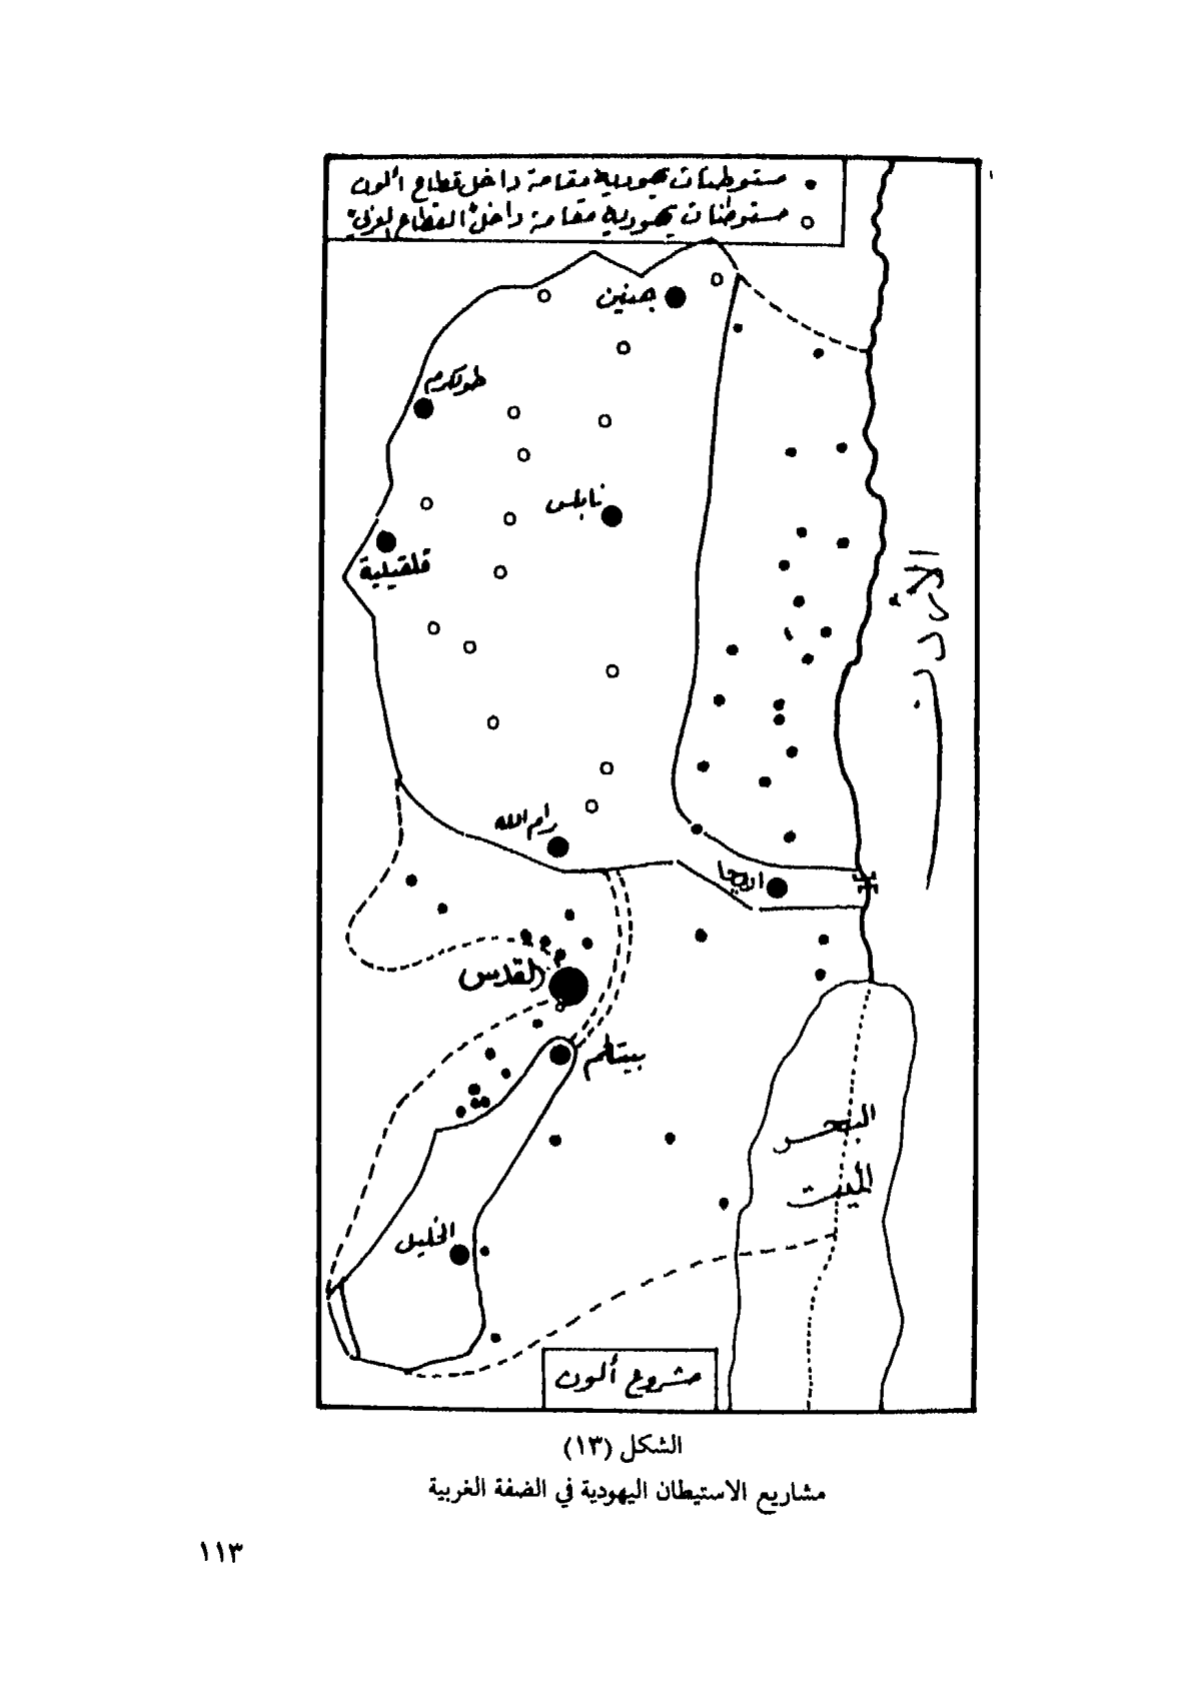 مستوطنات يهودية مقامة داخل قطاع ألون
مستوطنات يهودية مقامة داخل القطاع العربي
جنين
طولكرم
نابلس
قلقيلية
الأردن
رام الله
اريحا
القدس
بيتلحم
البحر
الميت
الخليل
مشروع ألون
الشكل (١٣)
مشاريع الاستيطان اليهودية في الضفة الغربية
١١٣